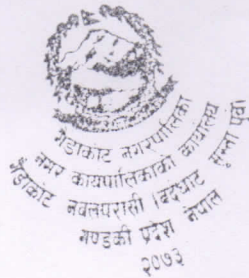 गैंडाकोट नगरपालिका
नगर कार्यपालिकाको कार्यालय
गैंडाकोट नवलपरासी (बर्दघाट सुस्ता पूर्व)
गण्डकी प्रदेश नेपाल
२०७३